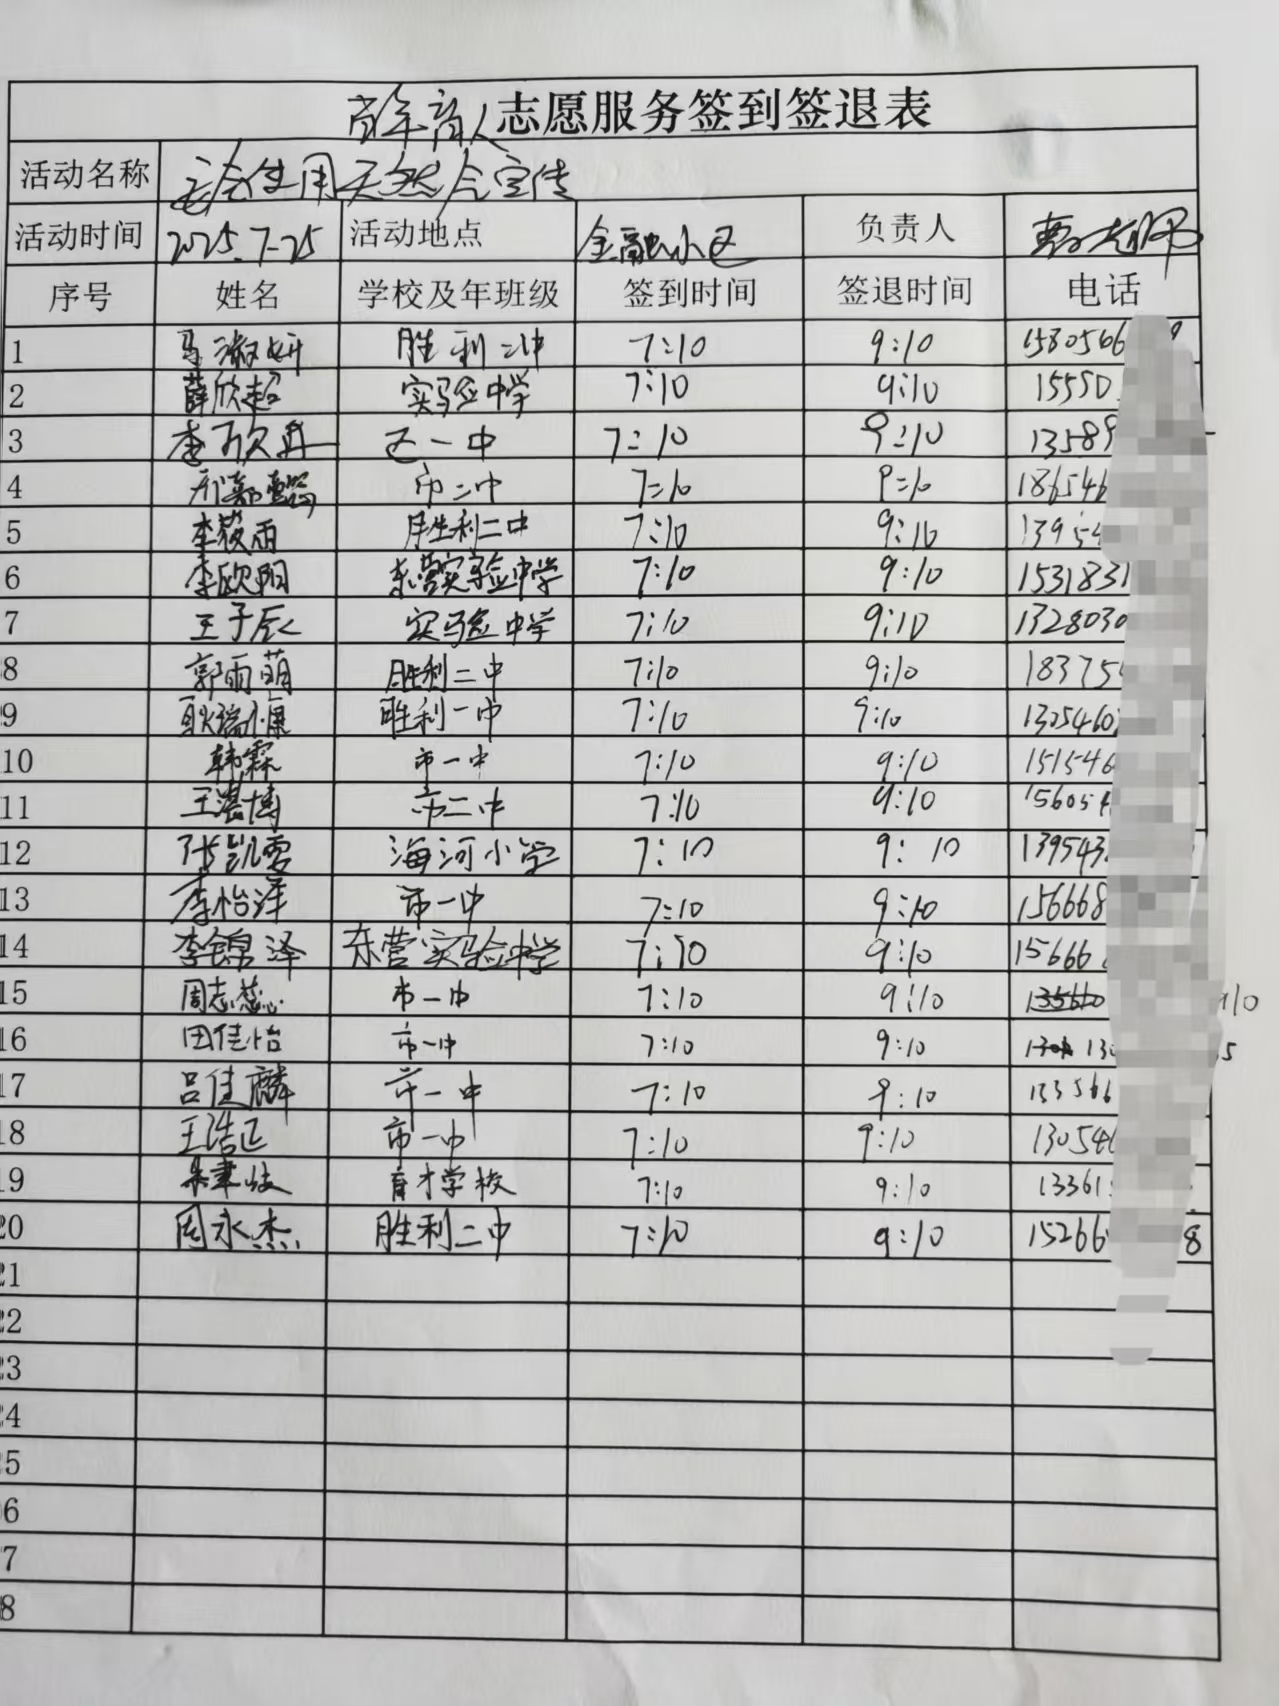 青年育人志愿服务签到签退表
活动名称 安全使用天然气宣传
活动时间 2025.7-25 活动地点 金融小区 负责人 老师
序号 姓名 学校及年班级 签到时间 签退时间 电话
1 马淑妍 胜利二中 7:10 9:10 1580566
2 薛欣超 实验中学 7:10 9:10 15550
3 李欣冉 区一中 7:10 9:10 13589
4 市二中 7:10 9:10 186546
5 李筱雨 胜利二中 7:10 9:10 13954
6 李欧阳 东营实验中学 7:10 9:10 1531831
7 王子辰 实验中学 7:10 9:10 1328030
8 郭雨萌 胜利二中 7:10 9:10 183754
9 耿瑞康 胜利一中 7:10 9:10 1305460
10 韩霖 市一中 7:10 9:10 151546
11 王湛博 市二中 7:10 9:10 156054
12 张凯雯 海河小学 7:10 9:10 139543
13 李怡泽 市一中 7:10 9:10 156668
14 李锦泽 东营实验中学 7:10 9:10 15666
15 周志蕊 市一中 7:10 9:10 135660 10
16 田佳怡 市一中 7:10 9:10 130 5
17 吕佳麟 市一中 7:10 9:10 133566
18 王浩正 市一中 7:10 9:10 130546
19 育才学校 7:10 9:10 13361
20 周永杰 胜利二中 7:10 9:10 15266 8
21
22
23
24
5
6
7
8